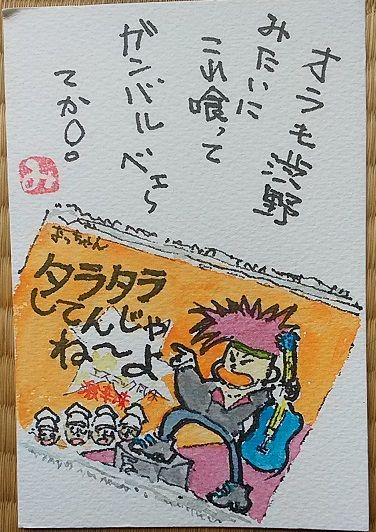 オラも渋野
みたいに
これ喰って
ガンバルベェ〜
てか〇。
よっちゃん
タラタラ
してんじゃ
ね〜よ